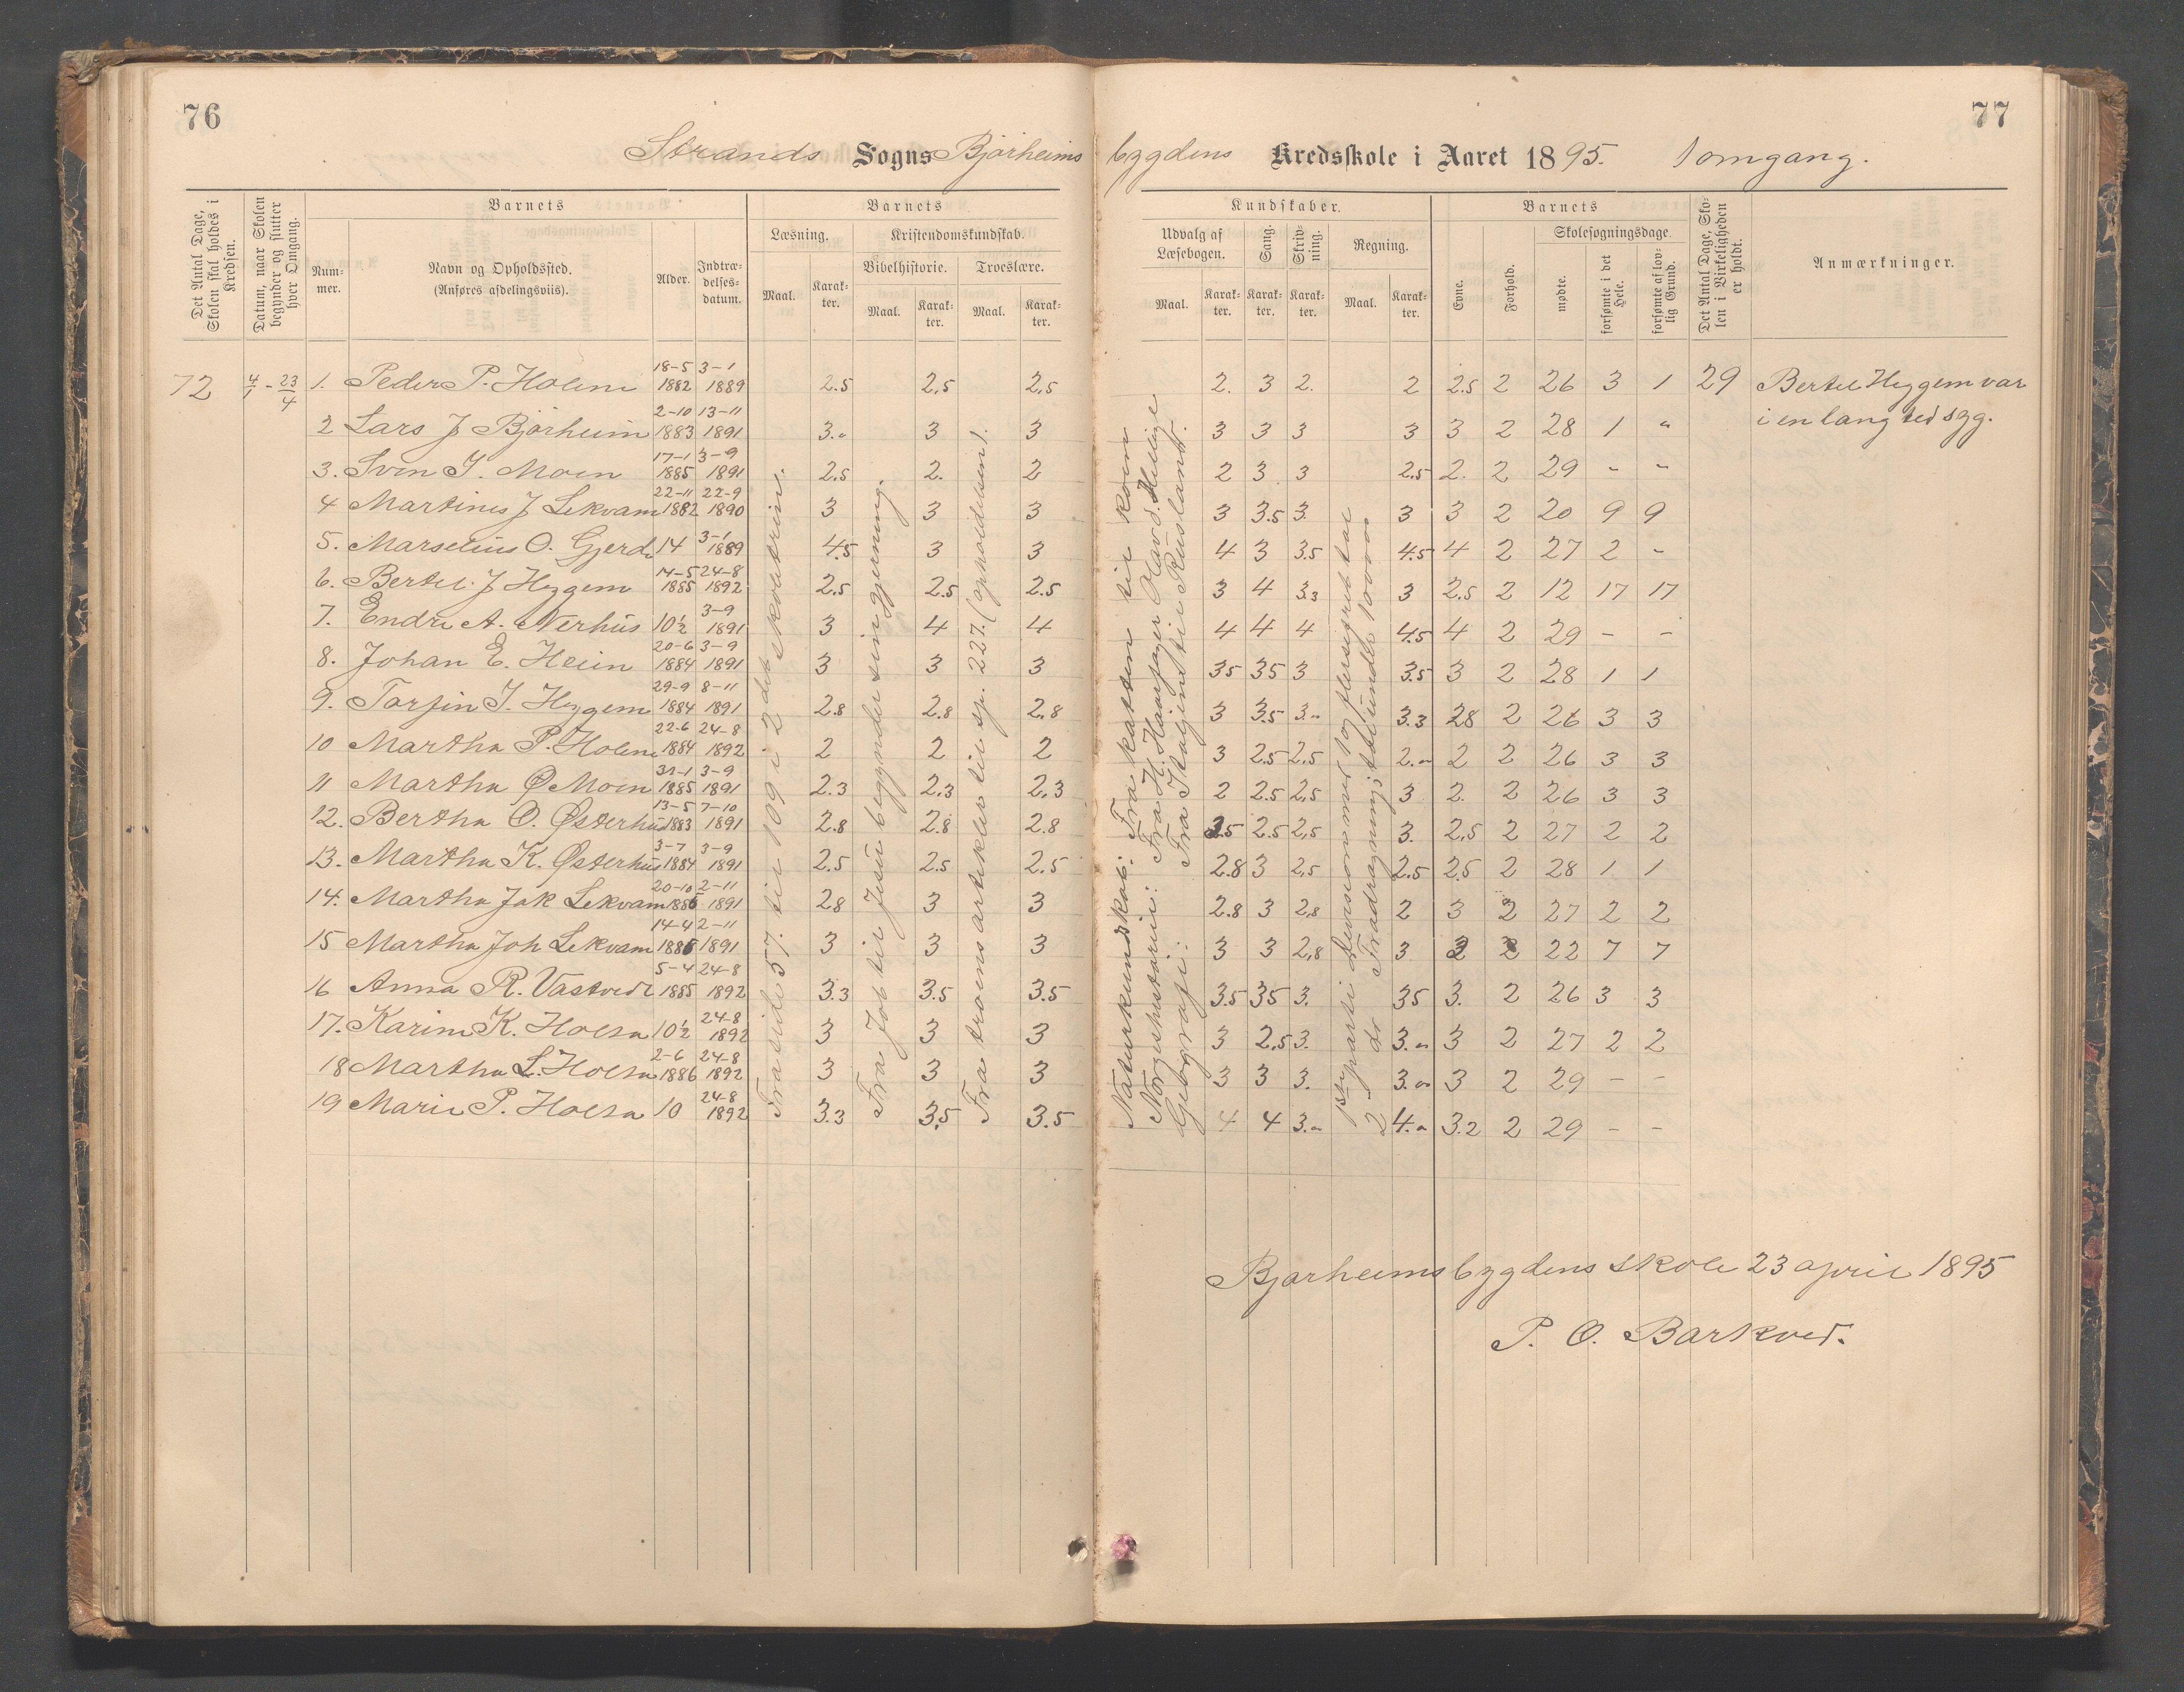 76
77
Strands Sogns Bjørheims bygdens Kredsskole i Aaret 1895. 1 omgang.
Det Antal Dage, Skolen skal holdes i Kredsen.
Datum, naar Skolen begynder og slutter hver Omgang.
Barnets
Num-mer.
Navn og Opholdssted.
(Anføres afdelingsviis).
Alder.
Indtræ-delses-datum.
Barnets
Læsning.
Maal.
Karak-ter.
Kristendomskundskab.
Bibelhistorie.
Maal.
Karak-ter.
Troeslære.
Maal.
Karak-ter.
Kundskaber.
Udvalg af Læsebogen.
Maal.
Karak-ter.
Sang.
Karak-ter.
Skriv-ning.
Karak-ter.
Regning.
Maal.
Karak-ter.
Barnets
Evne.
Forhold.
Skolesøgningsdage.
mødte.
forsømte i det Hele.
forsømte af lov-lig Grund.
Det Antal Dage, Sko-len i Virkeligheden er holdt.
Anmærkninger.
72 4/1 - 23/4 1. Peder P. Holm 18-5 1882 3-1 1889 2.5 2.5 2,5 2. 3 2. 2 2.5 2 26 3 1 29 Bertel Heggem var
2 Lars J Bjørheim 2-10 1883 13-11 1891 3.0 3 3 3 3 3 3 3 2 28 1 " i en lang tid syg.
3. Sven I. Moen 17-1 1885 3-9 1891 2.5 2. 2 2 3 3 2.5 2. 2 29 - -
4 Martines J Lekvam 22-11 1882 22-9 1890 3 3 3 3 3.5 3. 3 3 2 20 9 9
5. Marselius O. Gjerde 14 3-1 1889 4.5 3 3 4 3 3.5 4.5 4 2 27 2 -
6. Bertel J Heggem 14-5 1885 24-8 1892 2.5 2.5 2.5 3 4 3.3 3 2.5 2 12 17 17
7. Endre A. Nerhus 10½ 3-9 1891 3 4 4 4 4 4 4.5 4 2 29 - -
8. Johan E. Heim 20-6 1884 3-9 1891 3 3 3 35 35 3 3.5 3 2 28 1 1
9. Torfin I. Heggem 29-9 1884 8-11 1891 2.8 2.8 2,8 3 3.5 3.0 3.3 28 2 26 3 3
10 Martha P. Holm 22-6 1884 24-8 1892 2 2 2 3 2.5 2,5 2.0 2 2 26 3 3
11 Martha Ø Moen 31-1 1885 3-9 1891 2.3 2,3 2,3 2 2.5 2,5 3 2. 2 26 3 3
12. Bertha O. Østerhus 13-5 1883 7-10 1891 2.8 2.8 2.8 2.5 2.5 2,5 3. 2,5 2 27 2 2
13. Martha K. Østerhus 3-7 1884 3-9 1891 2.5 2.5 2.5 2.8 3 2,5 2.5 2.5 2 28 1 1
14. Martha Jak Lekvam 20-10 1885 2-11 1891 28 3 3 2.8 3 2,8 2 3 2 27 2 2
15 Martha Joh Lekvam 14-4 1886 2-11 1891 3 3 3 3 3 2,8 3 3 2 22 7 7
16 Anna R. Vastvedt 5-4 1885 24-8 1892 3.3 3.5 3.5 3.5 35 3. 35 3. 2 26 3 3
17. Karine K. Holsa 10½ 24-8 1892 3 3 3 3 2.5 3. 3.0 3 2 27 2 2
18 Martha L. Holsa 2-6 1886 24-8 1892 3 3 3 3 3 3. 3.0 3 2 29 - -
19 Marie P. Holsa 10 24-8 1892 3.3 3,5 3.5 4 4 3.0 4.0 3.2 2 29 - -
Fra side 57. til 109 i 2 det skoletrin.
Fra Job til Jesu begynder sin gjerning.
Fra troens artikler til sp. 227. (opholdelsen).
Naturkundskab: Fra katten til koen
Norgeshistorie: Fra H. Haarfager Olav d. Hellige
Geografi: Fra Italien til Rusland.
1ste parti Division med 1 og flersifret tal
2 do Fradragning; tal under 1000
Bjørheimsbygdens skole 23 april 1895
P. O. Barkved.